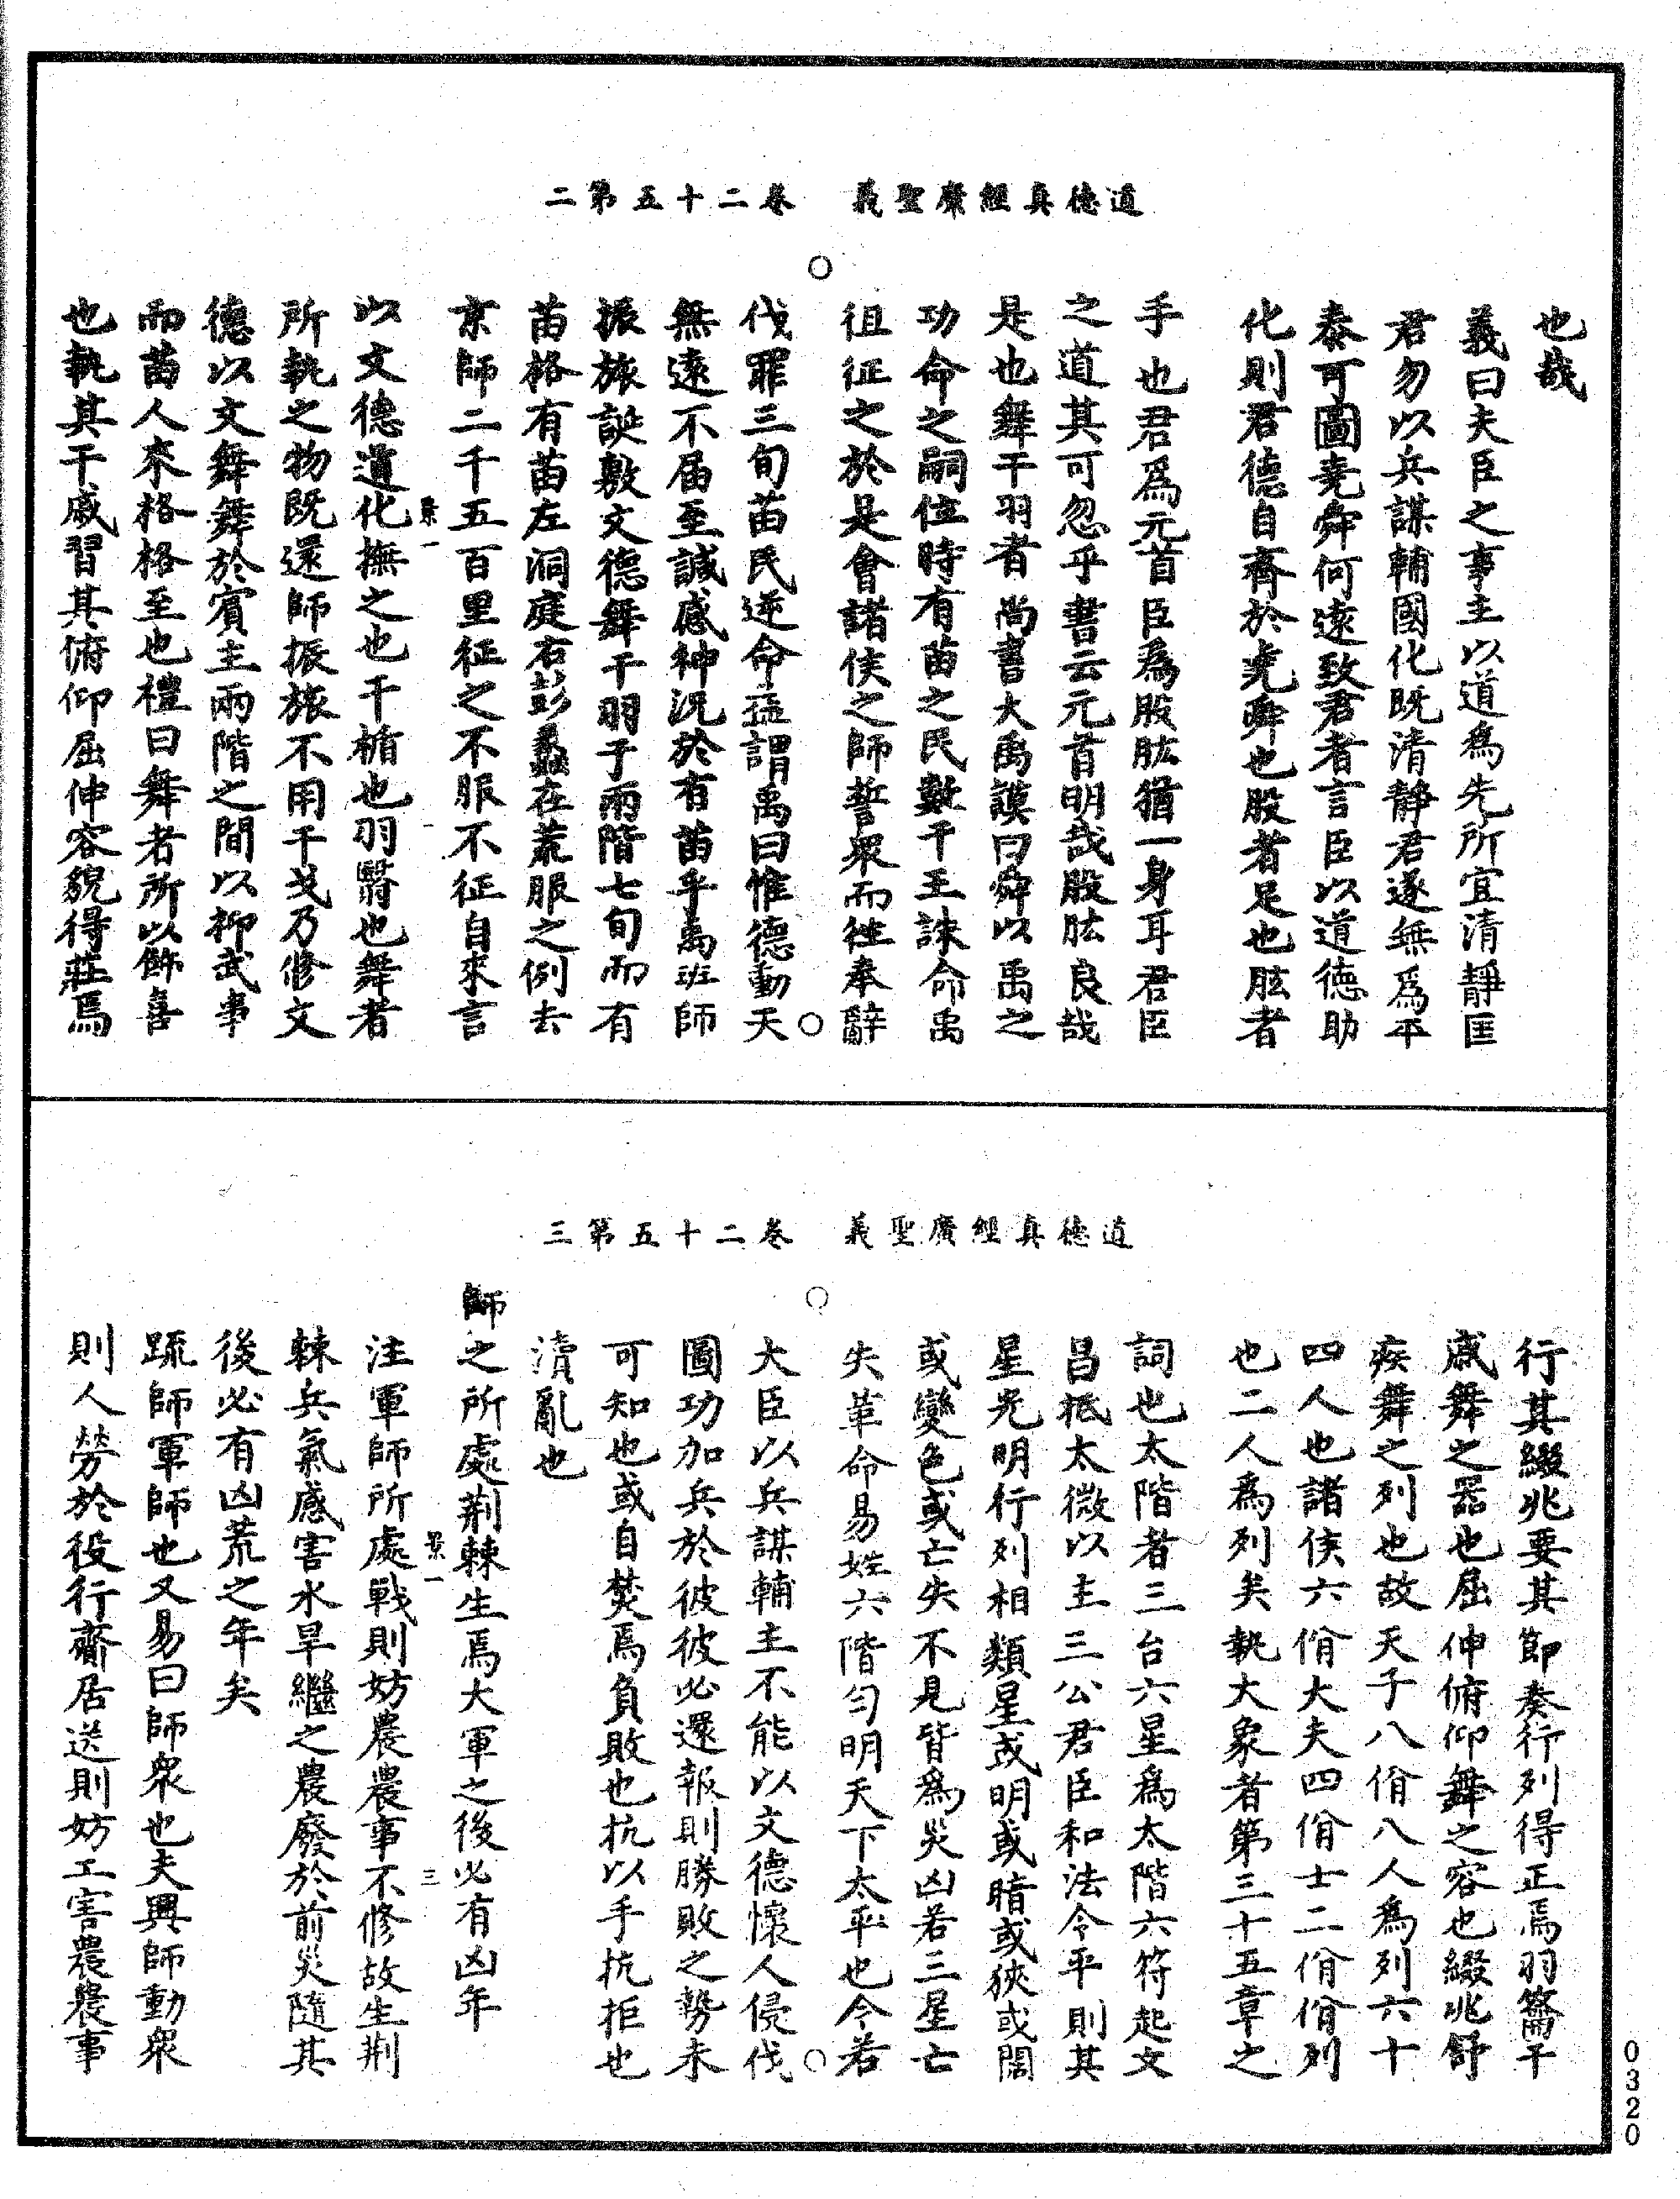 道德真經廣聖義　卷二十五第二
也哉
義曰夫臣之事主以道為先所宜清靜匡
君勿以兵謀輔國化既清靜君遂無為平
泰可圖堯舜何遠致君者言臣以道德助
化則君德自齊於堯舜也股者足也肱者
手也君為元首臣為股肱猶一身耳君臣
之道其可忽乎書云元首明哉股肱良哉
是也舞干羽者尚書大禹謨曰舜以禹之
功命之嗣位時有苗之民數干王誅命禹
徂征之於是會諸侯之師誓衆而往奉辭
伐罪三旬苗民逆命益謂禹曰惟德動天
無遠不届至諴感神況於有苗乎禹班師
振旅誕敷文德舞干羽于兩階七旬而有
苗格有苗左洞庭右彭蠡在荒服之例去
京師二千五百里征之不服不征自來言
以文德遠化撫之也干楯也羽翳也舞者
所執之物既還師振旅不用干戈乃修文
德以文舞舞於賓主兩階之間以抑武事
而苗人來格格至也禮曰舞者所以飾喜
也執其干戚習其俯仰屈伸容貌得莊焉
道德真經廣聖義　卷二十五第三
行其綴兆要其節奏行列得正焉羽籥干
戚舞之器也屈伸俯仰舞之容也綴兆舒
疾舞之列也故天子八佾八人為列六十
四人也諸侯六佾大夫四佾士二佾佾列
也二人為列矣執大象者第三十五章之
詞也太階者三台六星為太階六符起文
昌抵太微以主三公君臣和法令平則其
星光明行列相類星或明或暗或狹或闊
或變色或亡失不見皆為災凶若三星亡
失革命易姓六階勻明天下太平也今若
大臣以兵謀輔主不能以文德懷人侵伐
圖功加兵於彼彼必還報則勝敗之勢未
可知也或自焚焉負敗也抗以手抗拒也
瀆亂也
師之所處荆棘生焉大軍之後必有凶年
注軍師所處戰則妨農農事不修故生荆
棘兵氣感害水旱繼之農廢於前災隨其
後必有凶荒之年矣
䟽師軍師也又易曰師衆也夫興師動衆
則人勞於役行齎居送則妨工害農農事
0320